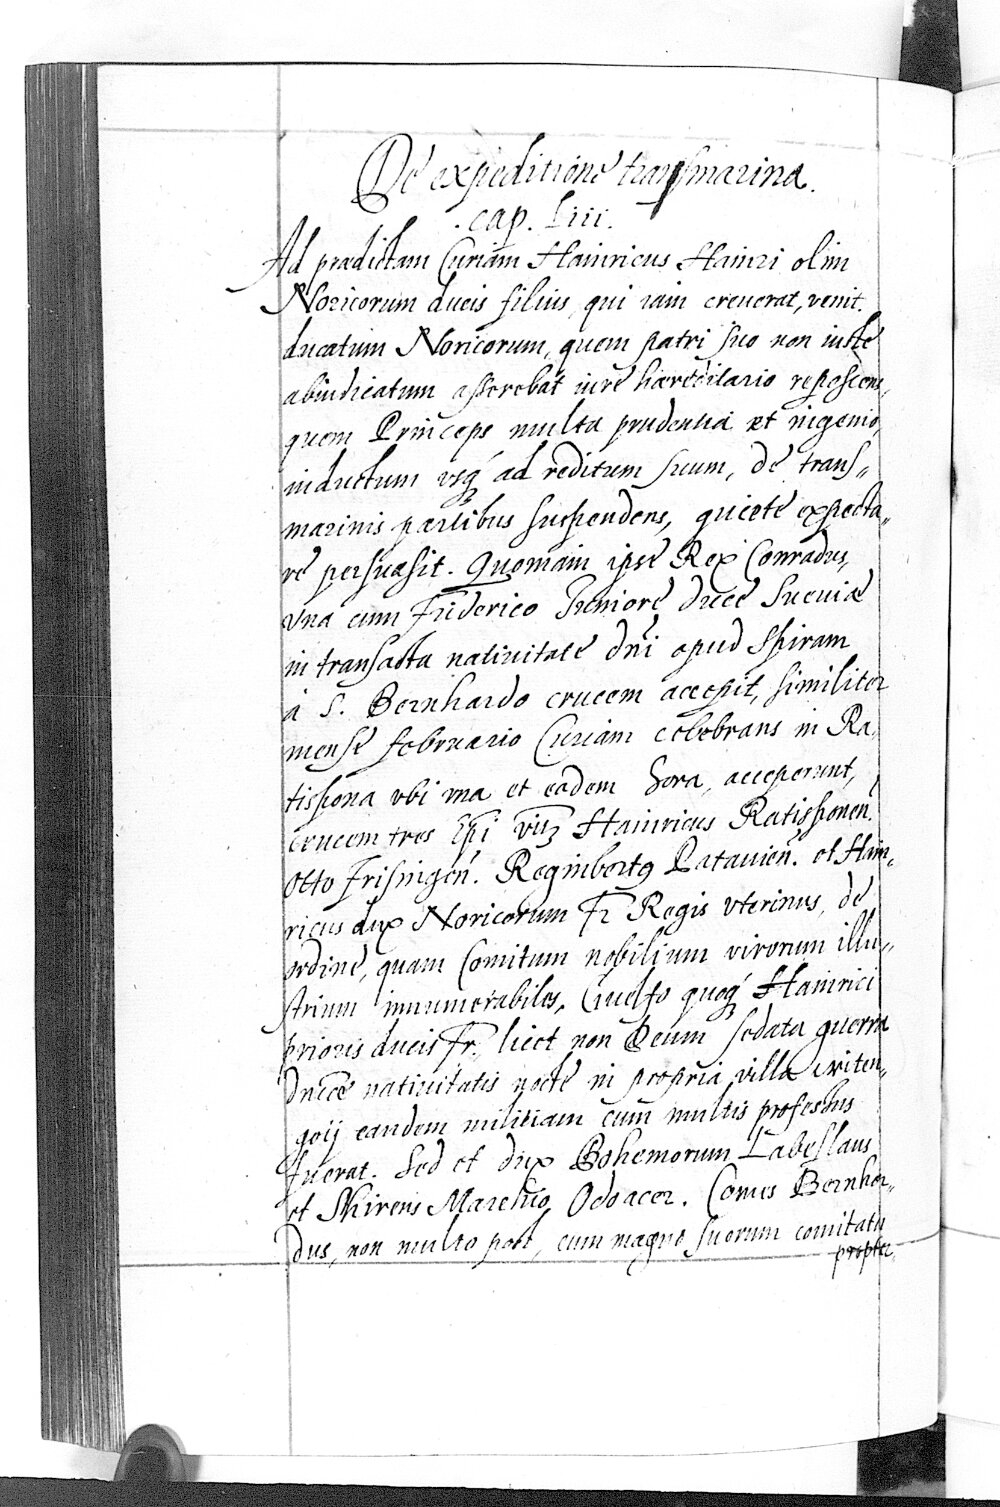 De expeditione transmarina.
. cap. Liii.
Ad prædictam Curiam Hainricus Hainri olim
Noricorum ducis filius, qui iam creuerat, venit.
ducatum Noricorum, quem patri suo non iuste
abiudicatum asserebat iure hæreditario reposcens,
quem Princeps multa prudentia et ingenio,
inductum vsq́ ad reditum suum, de trans„
marinis partibus suspendens, quiete expecta„
re persuasit. Quoniam ipse Rex Conradus,
vna cum Friderico Juniore duce Sueuiæ
in transacta natiuitate dn̄i apud Spiram
à S. Bernhardo crucem accepit, similiter
mense februario Curiam celebrans in Ra„
tispona vbi vna et eadem hora, acceperunt,
crucem tres Ep̄i viz Hainricus Ratisponen̄.
Otto Frisingen̄. Reginbertꝰ Patauien̄. et Hain„
ricus dux Noricorum Fr Regis vterinus, de
ordine, quam Comitum nobilium virorum illu„
strium innumerabiles, Guelfo quoq́ Hainrici
prioris ducis Fr., licet non Deum sedata guerra
dn̄ice natiuitatis nocte in propria villa witen„
goij eandem militiam cum multis professus
fuerat. Sed et dux Bohemorum Labeslaus
et Shirens Marchio Odoacer. Comes Bernhar„
dus, non multo post, cum magno suorum comitatu
propter